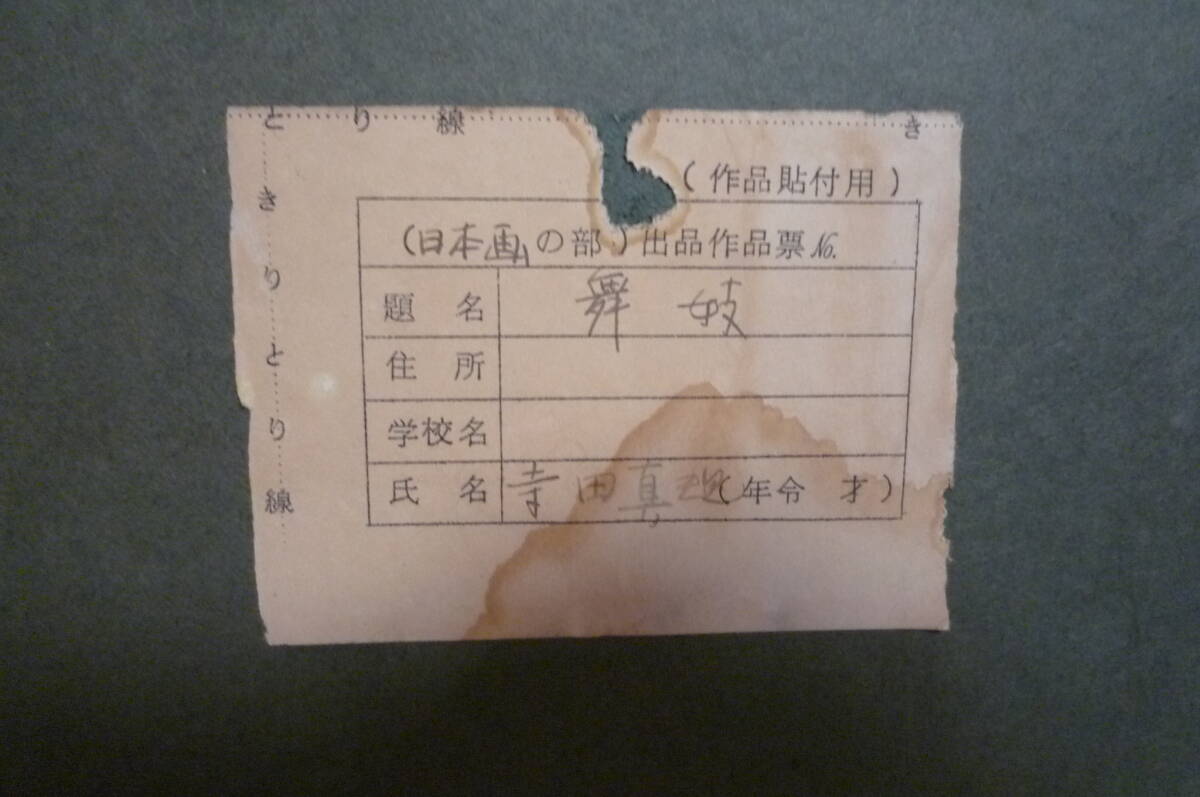 とり線 き
(作品貼付用)
きりとり線
(日本画の部)出品作品票No.
題名 舞妓
住所
学校名
氏名 寺田真 (年令 才)